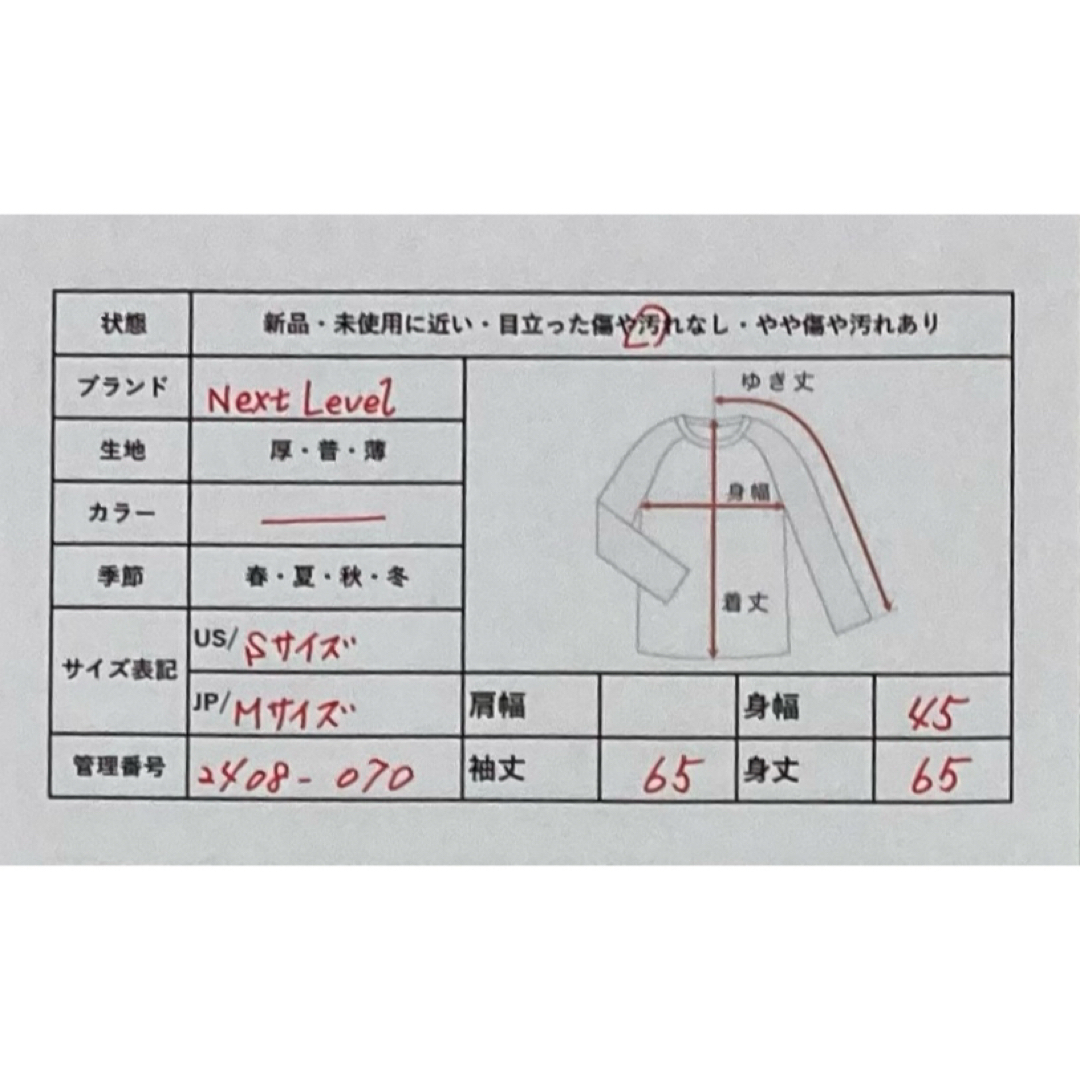 状態 新品・未使用に近い・目立った傷や汚れなし・やや傷や汚れあり
ブランド Next Level
生地 厚・普・薄
カラー
季節 春・夏・秋・冬
サイズ表記 US/Sサイズ
JP/Mサイズ
管理番号 2408-070
ゆき丈
身幅
着丈
肩幅 身幅 45
袖丈 65 身丈 65